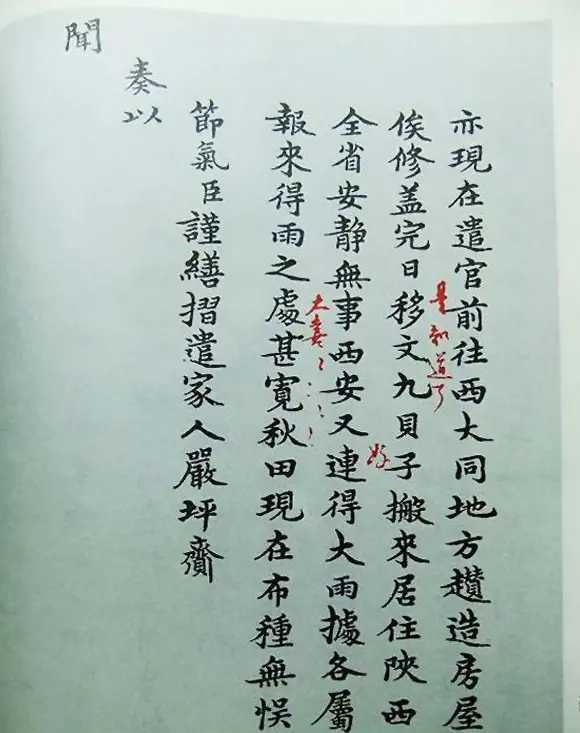 亦現在遣官前往西大同地方趲造房屋
是知道了
俟修盖完日移文九貝子搬來居住陝西
好
全省安静無事西安又連得大雨據各屬
大喜
報來得雨之處甚寬秋田現在布種無悞
節氣臣謹繕摺遣家人嚴坪齎
奏以
聞